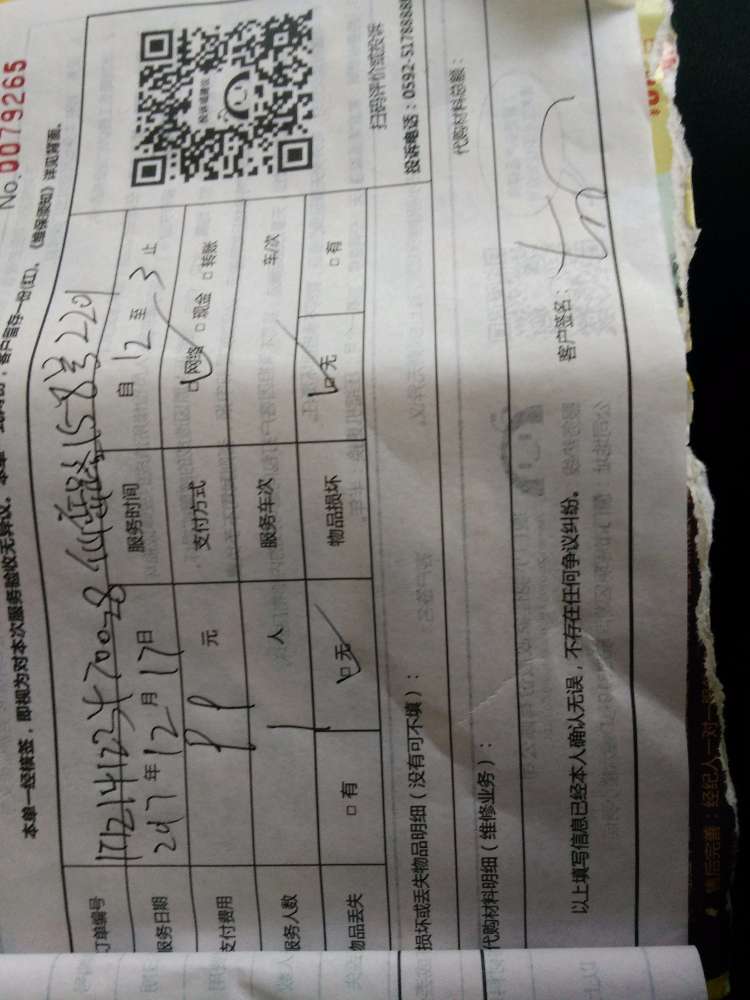 No.0079265
本单一经核签，即视为对本次服务验收无异议。
客户留存一份(红)。《维保须知》详见背面。
订单编号 仙岳路158号2201
服务日期 2017年12月17日 服务时间 自12至3止
支付费用 99元 支付方式 ☑网络 □现金 □转账
服务人数 1人 服务车次 车/次
物品丢失 □有 ☑无 物品损坏 ☑无 □有
投诉或建议
扫码评价或投诉
损坏或丢失物品明细（没有可不填）：
投诉电话：0592-5178888
代购材料明细（维修业务）：
代购材料总额：
以上填写信息已经本人确认无误，不存在任何争议纠纷。
客户签名：
售后完善：经纪人一对一